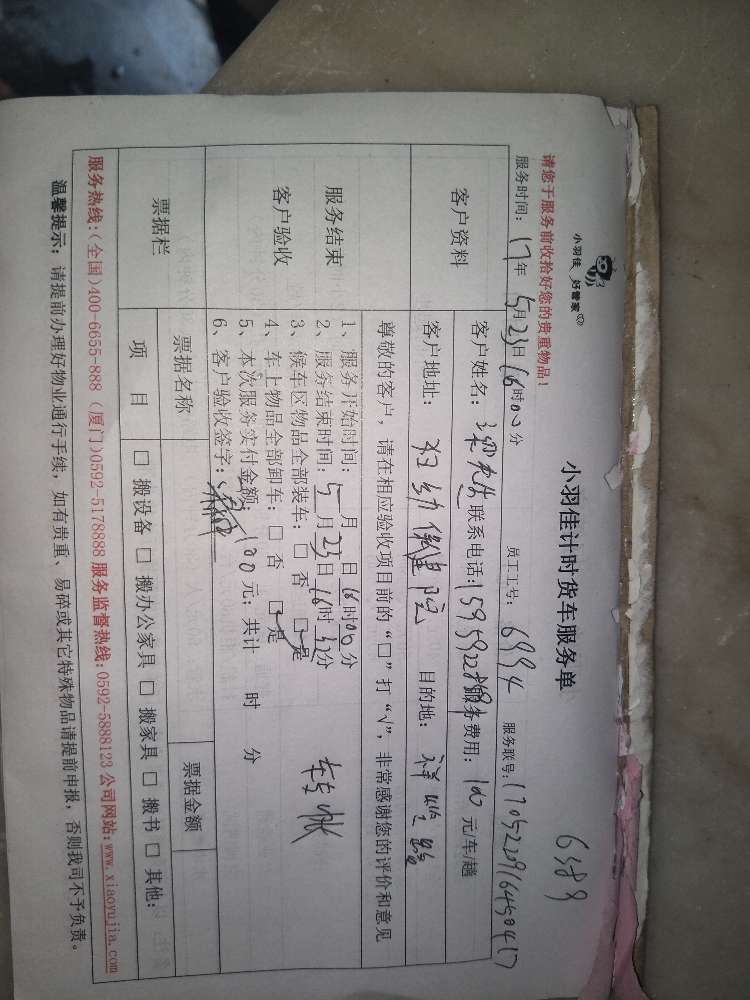 小羽佳 好管家
小羽佳计时货车服务单
6389
请您于服务前收拾好您的贵重物品！
服务时间：17年5月23日16时00分 员工工号：6994 服务联号：
客户资料
客户姓名： 联系电话： 服务费用：100元/车/趟
客户地址：妇幼保健院 目的地：
尊敬的客户，请在相应验收项目前的“□”打“√”，非常感谢您的评价和意见
服务结束
客户验收
1、服务开始时间： 月 日16时00分
2、服务结束时间：5月23日16时52分
3、候车区物品全部装车：□ 否 □ 是
4、车上物品全部卸车：□ 否 □ 是
5、本次服务实付金额：100元；共计 时 分
6、客户验收签字：
票据栏
票据名称
票据金额
项 目
□ 搬设备 □ 搬办公家具 □ 搬家具 □ 搬书 □ 其他：
服务热线：(全国)400-6655-888 (厦门)0592-5178888 服务监督热线：0592-5888123 公司网站：www.xiaoyujia.com
温馨提示：请提前办理好物业通行手续，如有贵重、易碎或其它特殊物品请提前申报，否则我司不予负责。